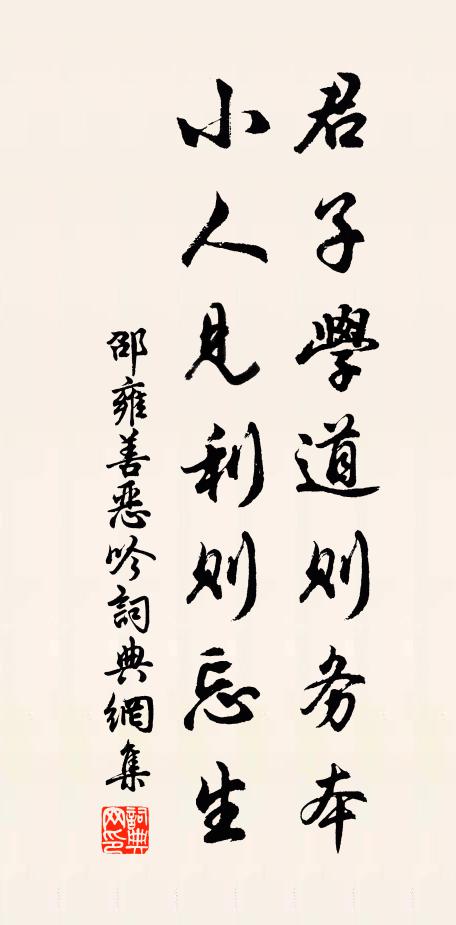 君子學道則务本
小人見利則忘生
邵雍善惡吟詞典網集
詞典网印